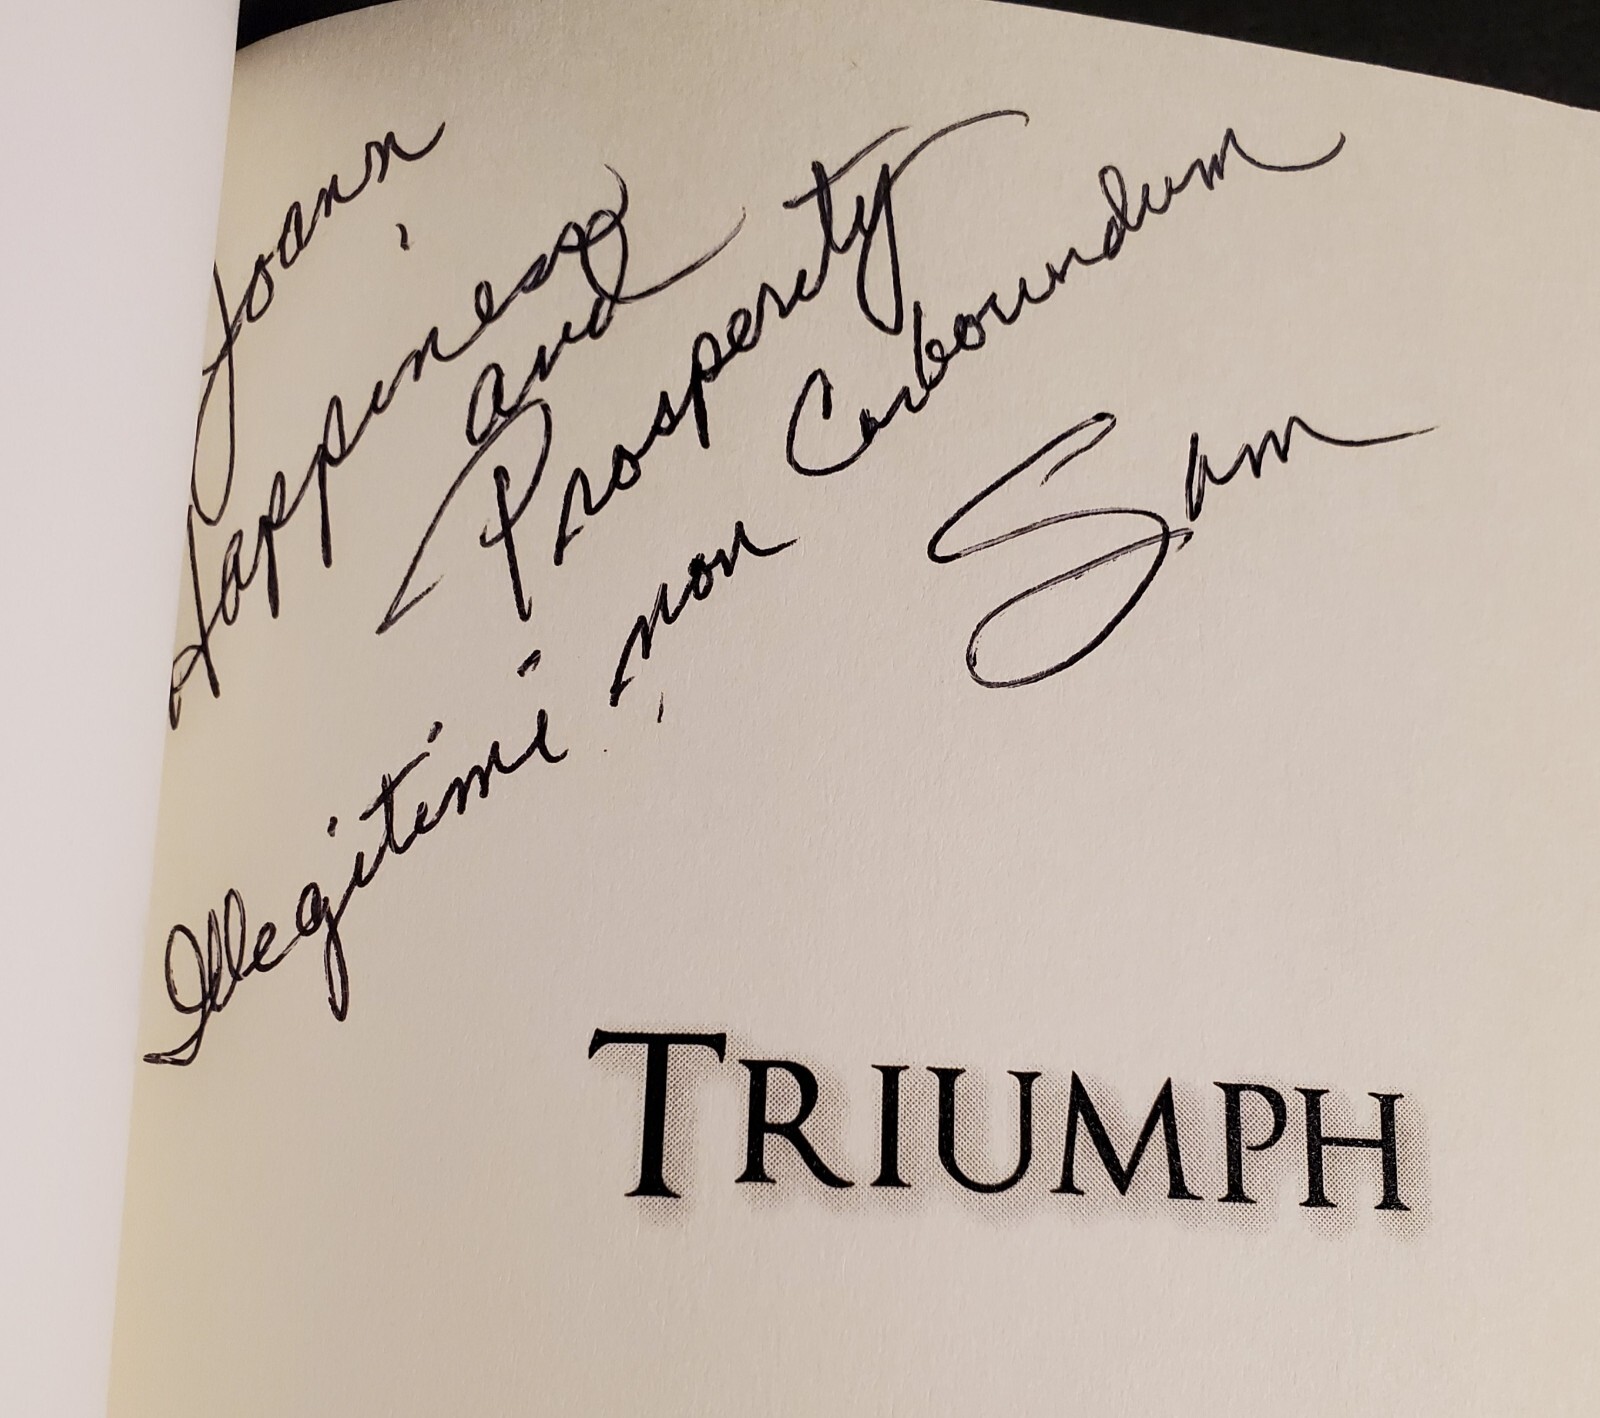 Joann
Happiness
and
Prosperity
Illegitimi non Carboundum
Sam
TRIUMPH